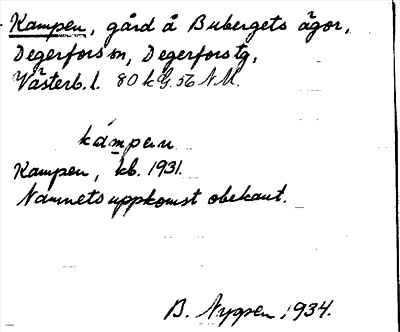 Kampen, gård å Bubergets ägor,
Degerfors sn, Degerfors tg,
Västerb. l. 80 k G. 56 NM.
kámpen
Kampen, kb. 1931.
Namnets uppkomst obekant.
B. 1934.